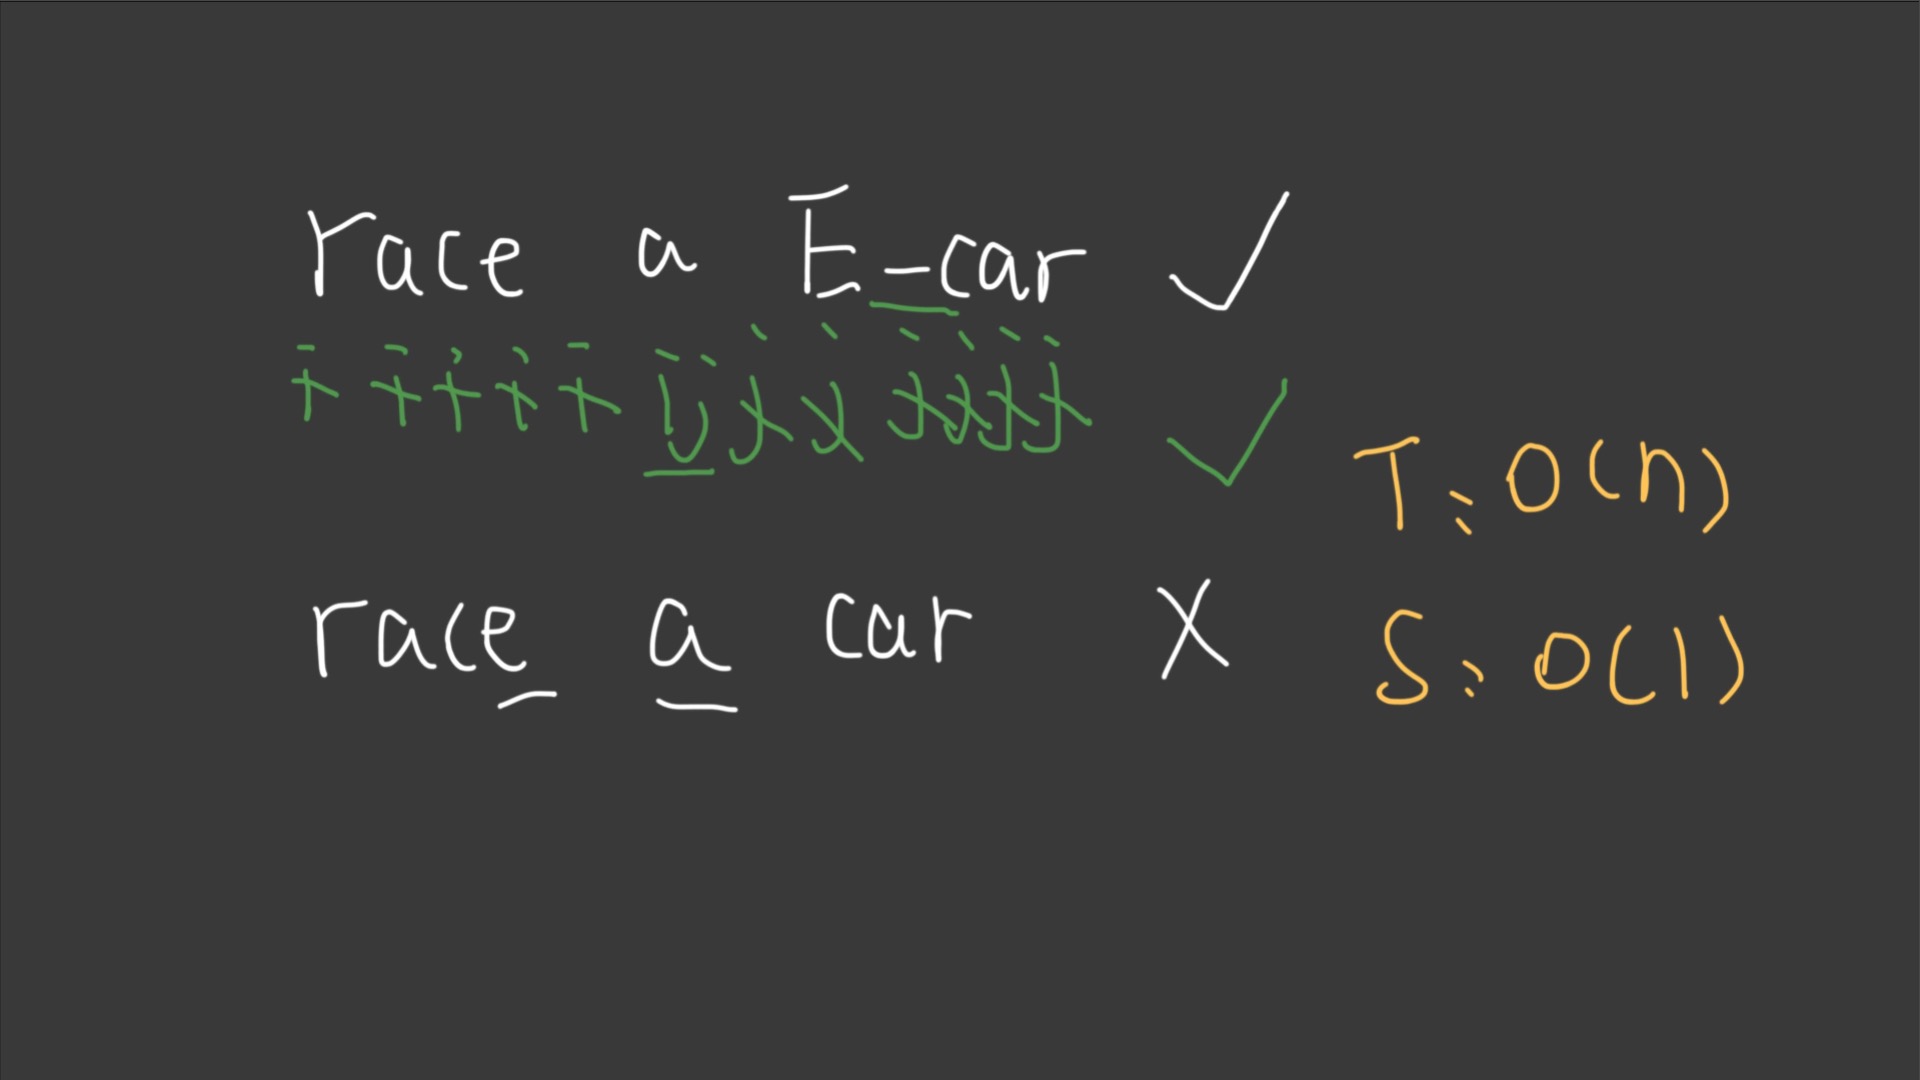 race a E-car ✓
i i i i i i j j j j j j j ✓
T: O(n)
race a car X
S: O(1)